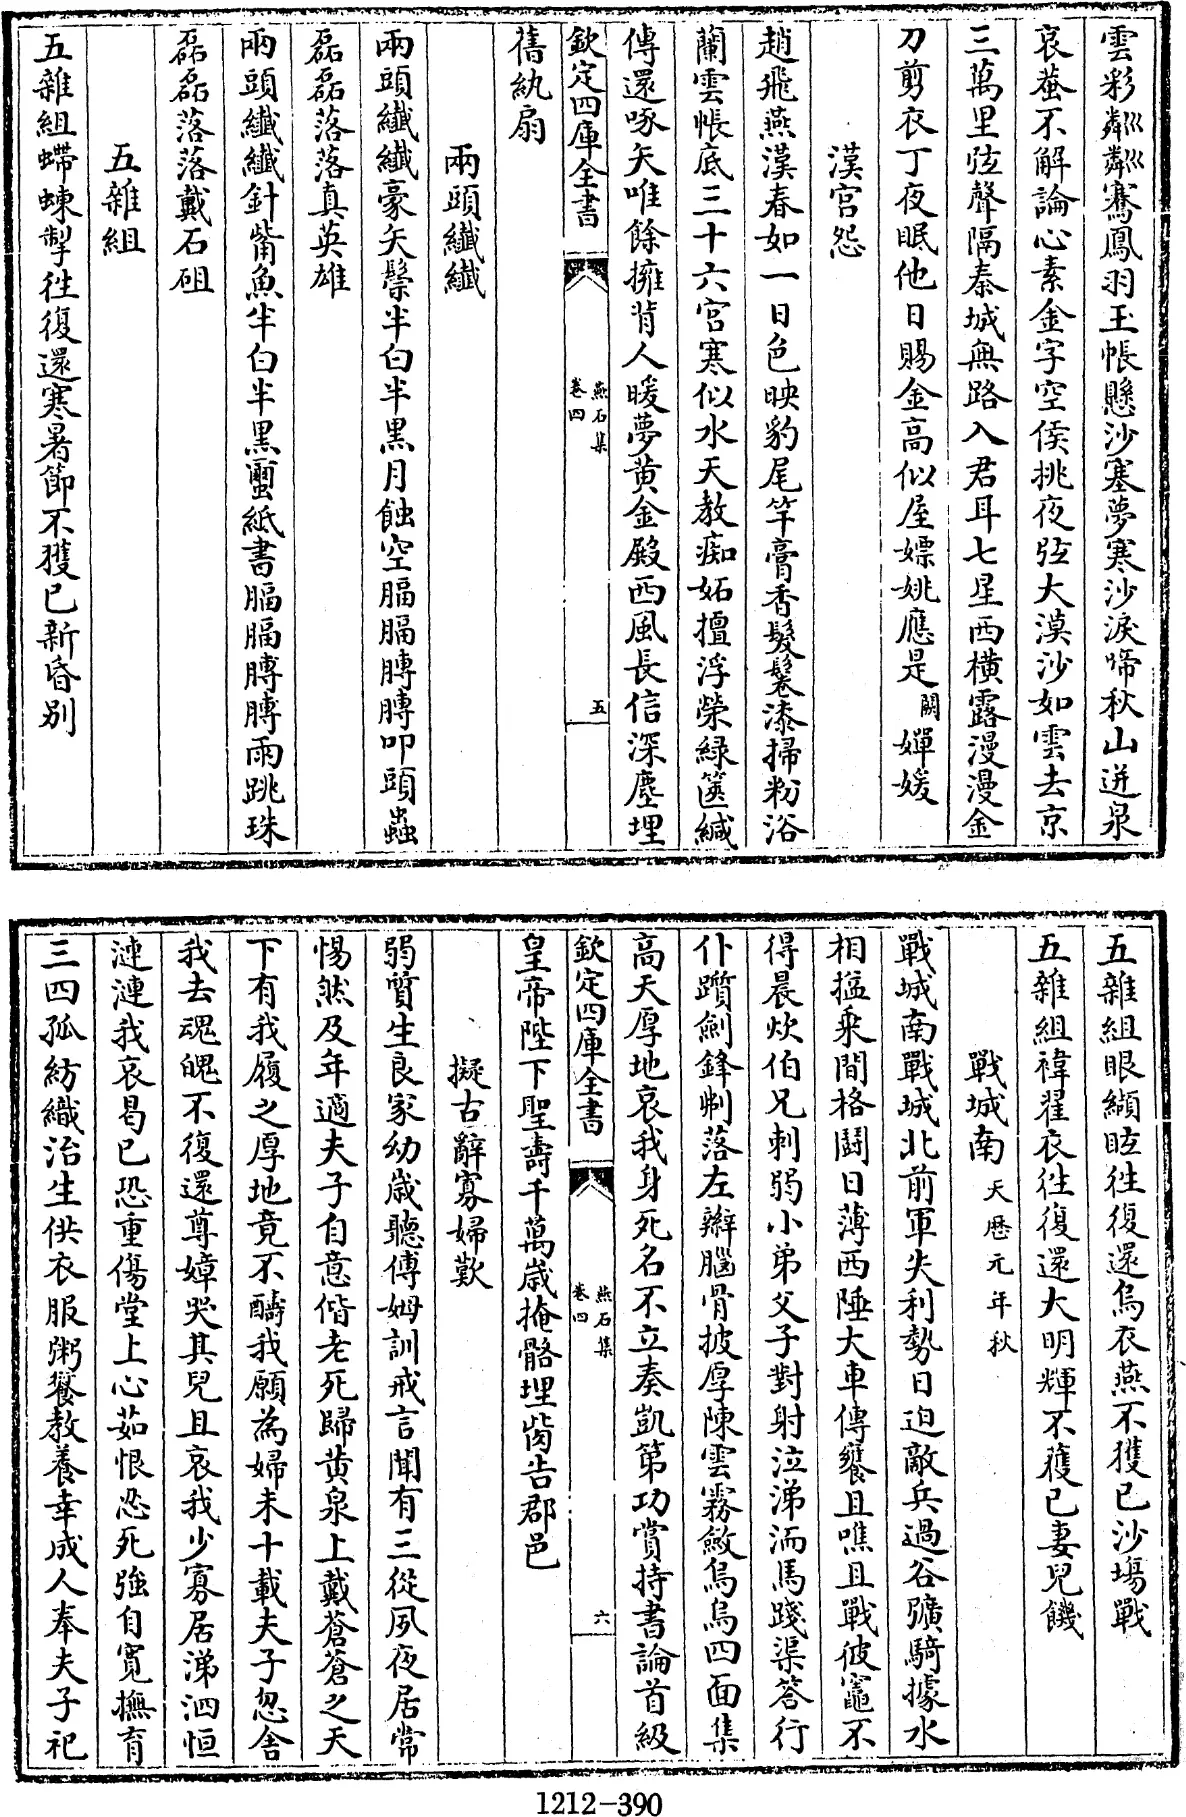 雲彩粼粼騫鳳羽玉帳懸沙塞夢寒沙淚啼秋山迸泉
哀蛩不解論心素金字空侯挑夜弦大漠沙如雲去京
三萬里弦聲隔秦城無路入君耳七星西橫露漫漫金
刀剪衣丁夜眠他日賜金高似屋嫖姚應是闕嬋媛
漢宮怨
趙飛燕漢春如一日色映豹尾竿膏香髮鬈漆掃粉浴
蘭雲帳底三十六宮寒似水天教痴妬擅浮榮緑篋緘
傳還啄矢唯餘擁背人暖夢黄金殿西風長信深塵埋
舊紈扇
兩頭纖纖
兩頭纖纖豪矢鬃半白半黒月蝕空腷腷膊膊叩頭蟲
磊磊落落真英雄
兩頭纖纖針觜魚半白半黒蠒紙書腷腷膊膊雨跳珠
磊磊落落戴石砠
五雜組
五雜組螮蝀掣徃復還寒暑節不獲已新昏别
欽定四庫全書
燕石集
卷四
五
五雜組眼纈眩徃復還烏衣燕不獲已沙塲戰
五雜組褘翟衣徃復還大明輝不獲已妻兒饑
戰城南天厯元年秋
戰城南戰城北前軍失利勢日迫敵兵過谷彍騎據水
相搤乘間格鬭日薄西陲大車傳饔且噍且戰彼竈不
得晨炊伯兄刺弱小弟父子對射泣涕洏馬踐渠荅行
仆躓劍鋒㓨落左辮腦骨披厚陳雲霧斂烏烏四面集
高天厚地哀我身死名不立奏凱第功賞持書論首級
皇帝陛下聖壽千萬歳掩骼埋胔告郡邑
擬古辭寡婦歎
弱質生良家幼歳聽傅姆訓戒言聞有三從夙夜居常
惕然及年適夫子自意偕老死歸黄泉上戴蒼蒼之天
下有我履之厚地竟不醻我願為婦未十載夫子忽舍
我去魂魄不復還尊嫜哭其兒且哀我少寡居涕泗恒
漣漣我哀曷已恐重傷堂上心茹恨忍死強自寛撫育
三四孤紡織治生供衣服粥饔教養幸成人奉夫子祀
欽定四庫全書
燕石集
卷四
六
1212-390